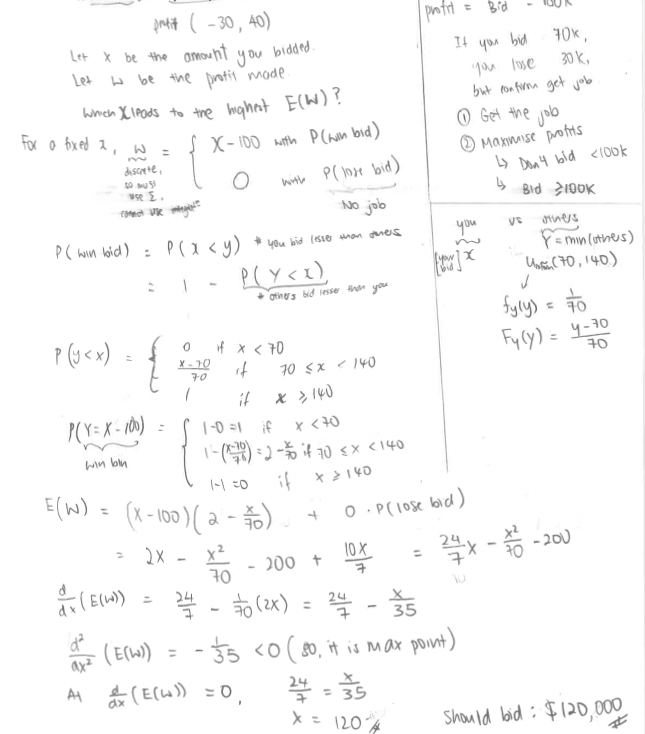 profit ( -30, 40)
Let x be the amount you bidded.
Let W be the profit made.
Which X leads to the highest E(W)?
For a fixed x, W = { X-100 with P(win bid)
0 with P(lose bid)
discrete,
so must
use Σ,
cannot use
No job
P(win bid) = P(x < y) * you bid lesser than others
= 1 - P(Y < x)
* others bid lesser than you
P(y < x) = { 0 if x < 70
x-70/70 if 70 ≤ x < 140
1 if x ≥ 140
P(Y = X - 100) = { 1-0 = 1 if x < 70
win bin
1-(x-70/70) = 2 - x/70 if 70 ≤ x < 140
1-1 = 0 if x ≥ 140
E(W) = (x-100)(2 - x/70) + 0 · P(lose bid)
= 2x - x²/70 - 200 + 10x/7 = 24/7 x - x²/70 - 200
d/dx (E(W)) = 24/7 - 1/70 (2x) = 24/7 - x/35
d²/dx² (E(W)) = - 1/35 < 0 (so, it is max point)
At d/dx (E(W)) = 0, 24/7 = x/35
x = 120
Should bid : $120,000
profit = Bid - 100k
If you bid 70k,
you lose 30k,
but confirm get job
① Get the job
② Maximise profits
↳ Don't bid <100k
↳ Bid ≥100k
you vs others
[your bid] x Y = min(others)
(70, 140)
fy(y) = 1/70
Fy(y) = y-70/70